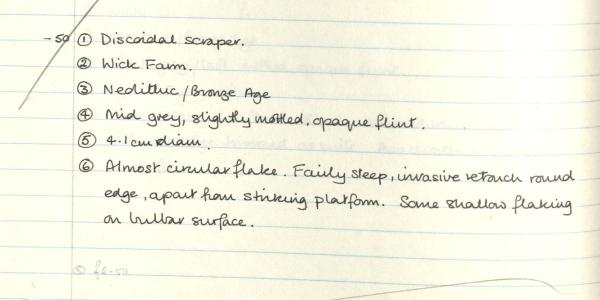 -50 ① Discoidal scraper.
② Wick Farm.
③ Neolithic/Bronze Age
④ Mid grey, slightly mottled, opaque flint.
⑤ 4.1cm diam.
⑥ Almost circular flake. Fairly steep, invasive retouch round
edge, apart from striking platform. Some shallow flaking
on bulbar surface.